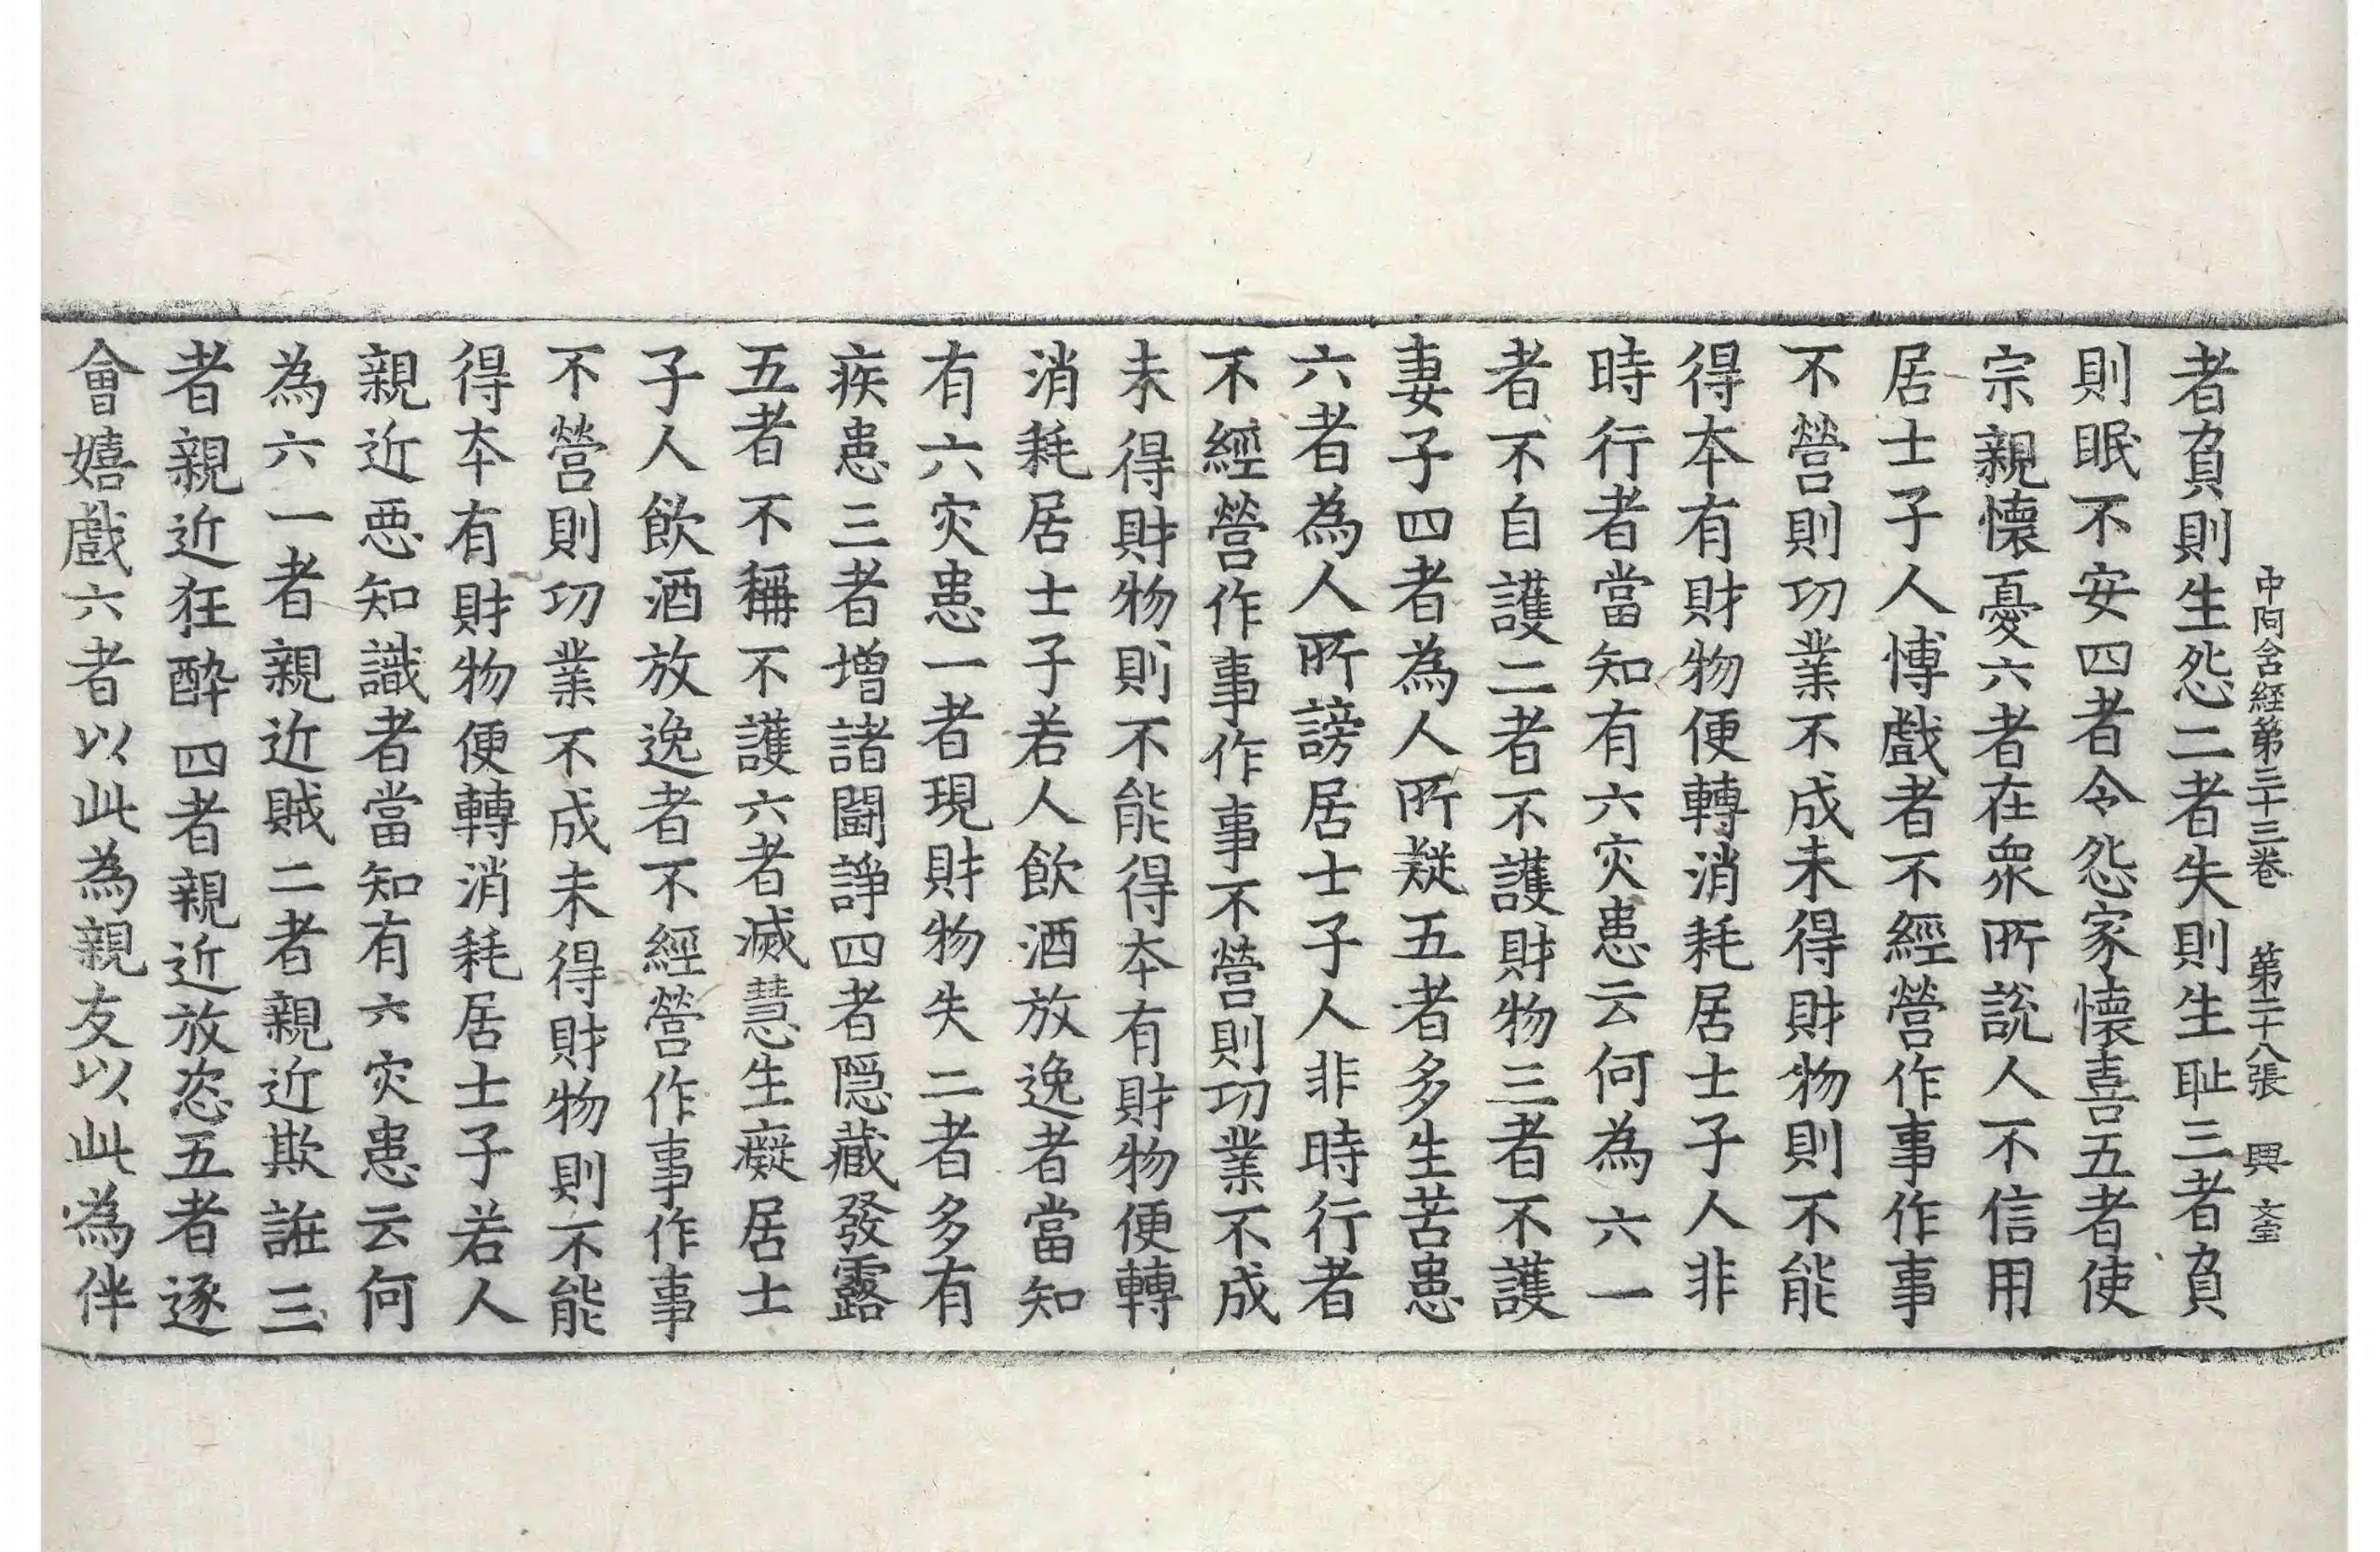 中阿含經第三十三卷 第二十八張 興 文宝
者負則生怨二者失則生耻三者負
則眠不安四者令怨家懷喜五者使
宗親懷憂六者在衆所説人不信用
居士子人博戲者不經營作事作事
不營則功業不成未得財物則不能
得本有財物便轉消耗居士子人非
時行者當知有六灾患云何為六一
者不自護二者不護財物三者不護
妻子四者為人所疑五者多生苦患
六者為人所謗居士子人非時行者
不經營作事作事不營則功業不成
未得財物則不能得本有財物便轉
消耗居士子若人飲酒放逸者當知
有六灾患一者現財物失二者多有
疾患三者增諸鬪諍四者隱藏發露
五者不稱不護六者滅慧生癡居士
子人飲酒放逸者不經營作事作事
不營則功業不成未得財物則不能
得本有財物便轉消耗居士子若人
親近惡知識者當知有六灾患云何
為六一者親近賊二者親近欺誑三
者親近狂醉四者親近放恣五者逐
會嬉戲六者以此為親友以此為伴